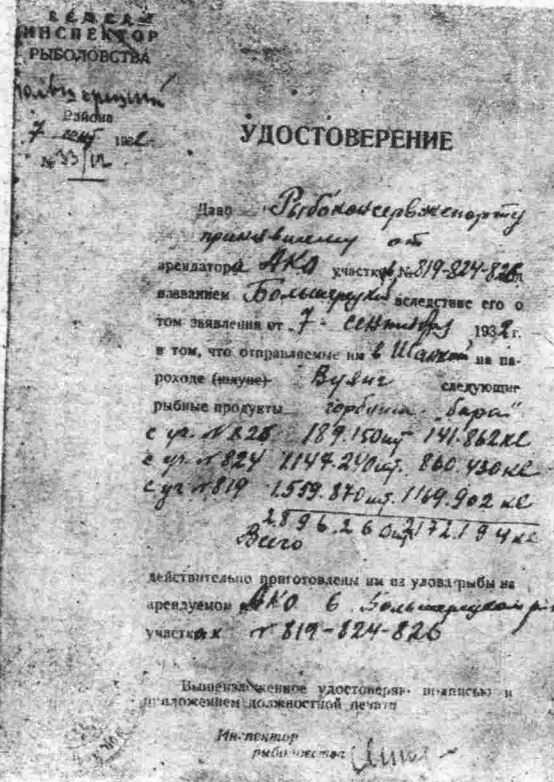 ИНСПЕКТОР
РЫБОЛОВСТВА
Района
7 сент 1932
№ 33/12
УДОСТОВЕРЕНИЕ
Дано Рыбоконсервэкспорту
принявшему от
арендатора АКО участков, № 819-824-826
названием Большерецкий вследствие его о
том заявления от 7 сентября 1932 г.
в том, что отправляемые им в Шанхай на па-
роходе (шхуне) Вулинг следующие
рыбные продукты горбуша „бара"
с уч. № 826 189.150 шт 141.862 кг
с уч. № 824 1147.240 шт. 860.430 кг
с уч № 819 1559.870 шт. 1169.902 кг
2.896.260 шт 2172.194 кг
Всего
действительно приготовлены им из улова рыбы на
арендуемом АКО в Большерецком р-
участках № 819-824-826
Вышеизложенное удостоверяю подписью и
приложением должностной печати
Инспектор
рыболовства